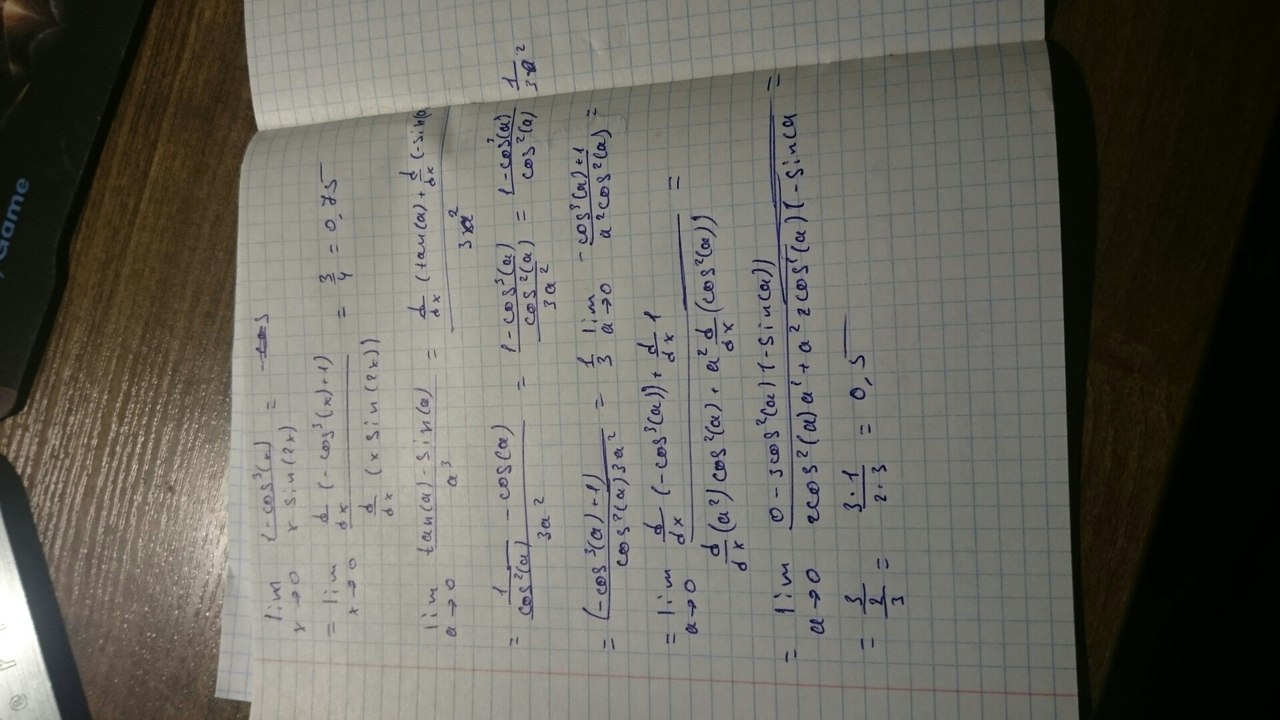 lim x→0 (1-cos³(x))/(x sin(2x)) =
= lim x→0 (d/dx (-cos³(x)+1))/(d/dx (x sin(2x))) = 3/4 = 0,75
lim a→0 (tan(a)-sin(a))/a³ = (d/dx (tan(a) + d/dx (-sin(a)/(3a²)
= (1/cos²(a) - cos(a))/(3a²) = ((1-cos³(a))/cos²(a))/(3a²) = (1-cos³(a))/cos²(a) 1/(3a²)
= (-cos³(a)+1)/(cos²(a)3a²) = 1/3 lim a→0 (-cos³(a)+1)/(a²cos²(a)) =
= lim a→0 (d/dx (-cos³(a)) + d/dx 1)/(d/dx (a²) cos²(a) + a² d/dx (cos²(a))) =
= lim a→0 (0 - 3cos²(a)(-sin(a)))/(2cos²(a)a' + a² 2cos²(a)(-sin(a) =
= 3/(2/3) = (3·1)/(2·3) = 0,5
Game